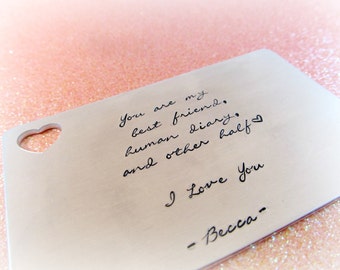 You are my
best friend,
human diary,
and other half♡
I Love You
-Becca-